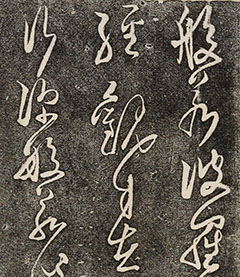 般若波羅
經觀自在
行深般若